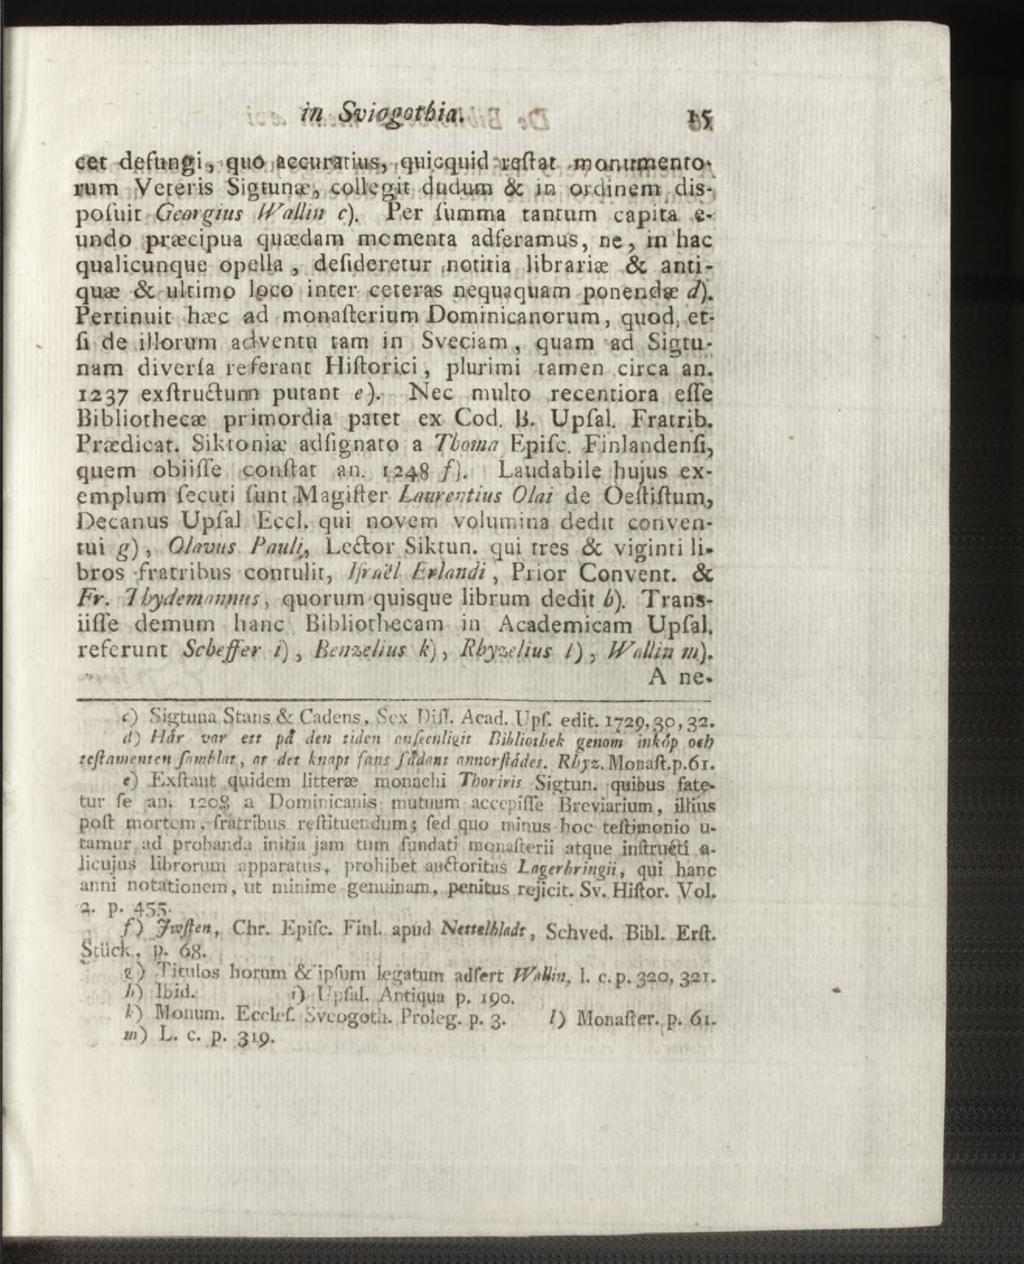 in Sviogothia. 15
cet defungi, quo accuratius, quicquid restat monumento-
rum Veteris Sigtunæ, collegit dudum & in ordinem dis-
posuit Georgius Wallin c). Per summa tantum capita e-
undo præcipua quædam momenta adferamus, ne, in hac
qualicunque opella, desideretur notitia librariæ & anti-
quæ & ultimo loco inter ceteras nequaquam ponendæ d).
Pertinuit hæc ad monasterium Dominicanorum, quod, et-
si de illorum adventu tam in Sveciam, quam ad Sigtu-
nam diversa referant Historici, plurimi tamen circa an.
1237 exstructum putant e). Nec multo recentiora esse
Bibliothecæ primordia patet ex Cod. B. Upsal. Fratrib.
Prædicat. Siktoniæ adsignato a Thoma Episc. Finlandensi,
quem obiisse constat an. 1248 f). Laudabile hujus ex-
emplum secuti sunt Magister Laurentius Olai de Oestistum,
Decanus Upsal Eccl. qui novem volumina dedit conven-
tui g), Olavus Pauli, Lector Siktun. qui tres & viginti li-
bros fratribus contulit, Israël Erlandi, Prior Convent. &
Fr. Thydemannus, quorum quisque librum dedit h). Trans-
iisse demum hanc Bibliothecam in Academicam Upsal.
referunt Scheffer i), Benzelius k), Rhyzelius l), Wallin m).
A ne-
c) Sigtuna Stans & Cadens, Sex Diss. Acad. Ups. edit. 1729, 30, 32.
d) Här var ett på den tiden ansenligit Bibliothek genom inköp och
testamenten samblat, at det knapt fans sådant annorstädes. Rhyz. Monast. p. 61.
e) Exstant quidem litteræ monachi Thoriris Sigtun. quibus fate-
tur se an. 1208 a Dominicanis mutuum accepisse Breviarium, illius
post mortem, fratribus restituendum; sed quo minus hoc testimonio u-
tamur ad probanda initia jam tum fundati monasterii atque instructi a-
licujus librorum apparatus, prohibet auctoritas Lagerbringii, qui hanc
anni notationem, ut minime genuinam, penitus rejicit. Sv. Histor. Vol.
2. p. 455.
f) Juusten, Chr. Episc. Finl. apud Nettelbladt, Schved. Bibl. Erst.
Stück, p. 68.
g) Titulos horum & ipsum legatum adfert Wallin, l. c. p. 320, 321.
h) Ibid. i) Upsal. Antiqua p. 190.
k) Monum. Eccles. Sveogoth. Proleg. p. 3. l) Monaster. p. 61.
m) L. c. p. 319.